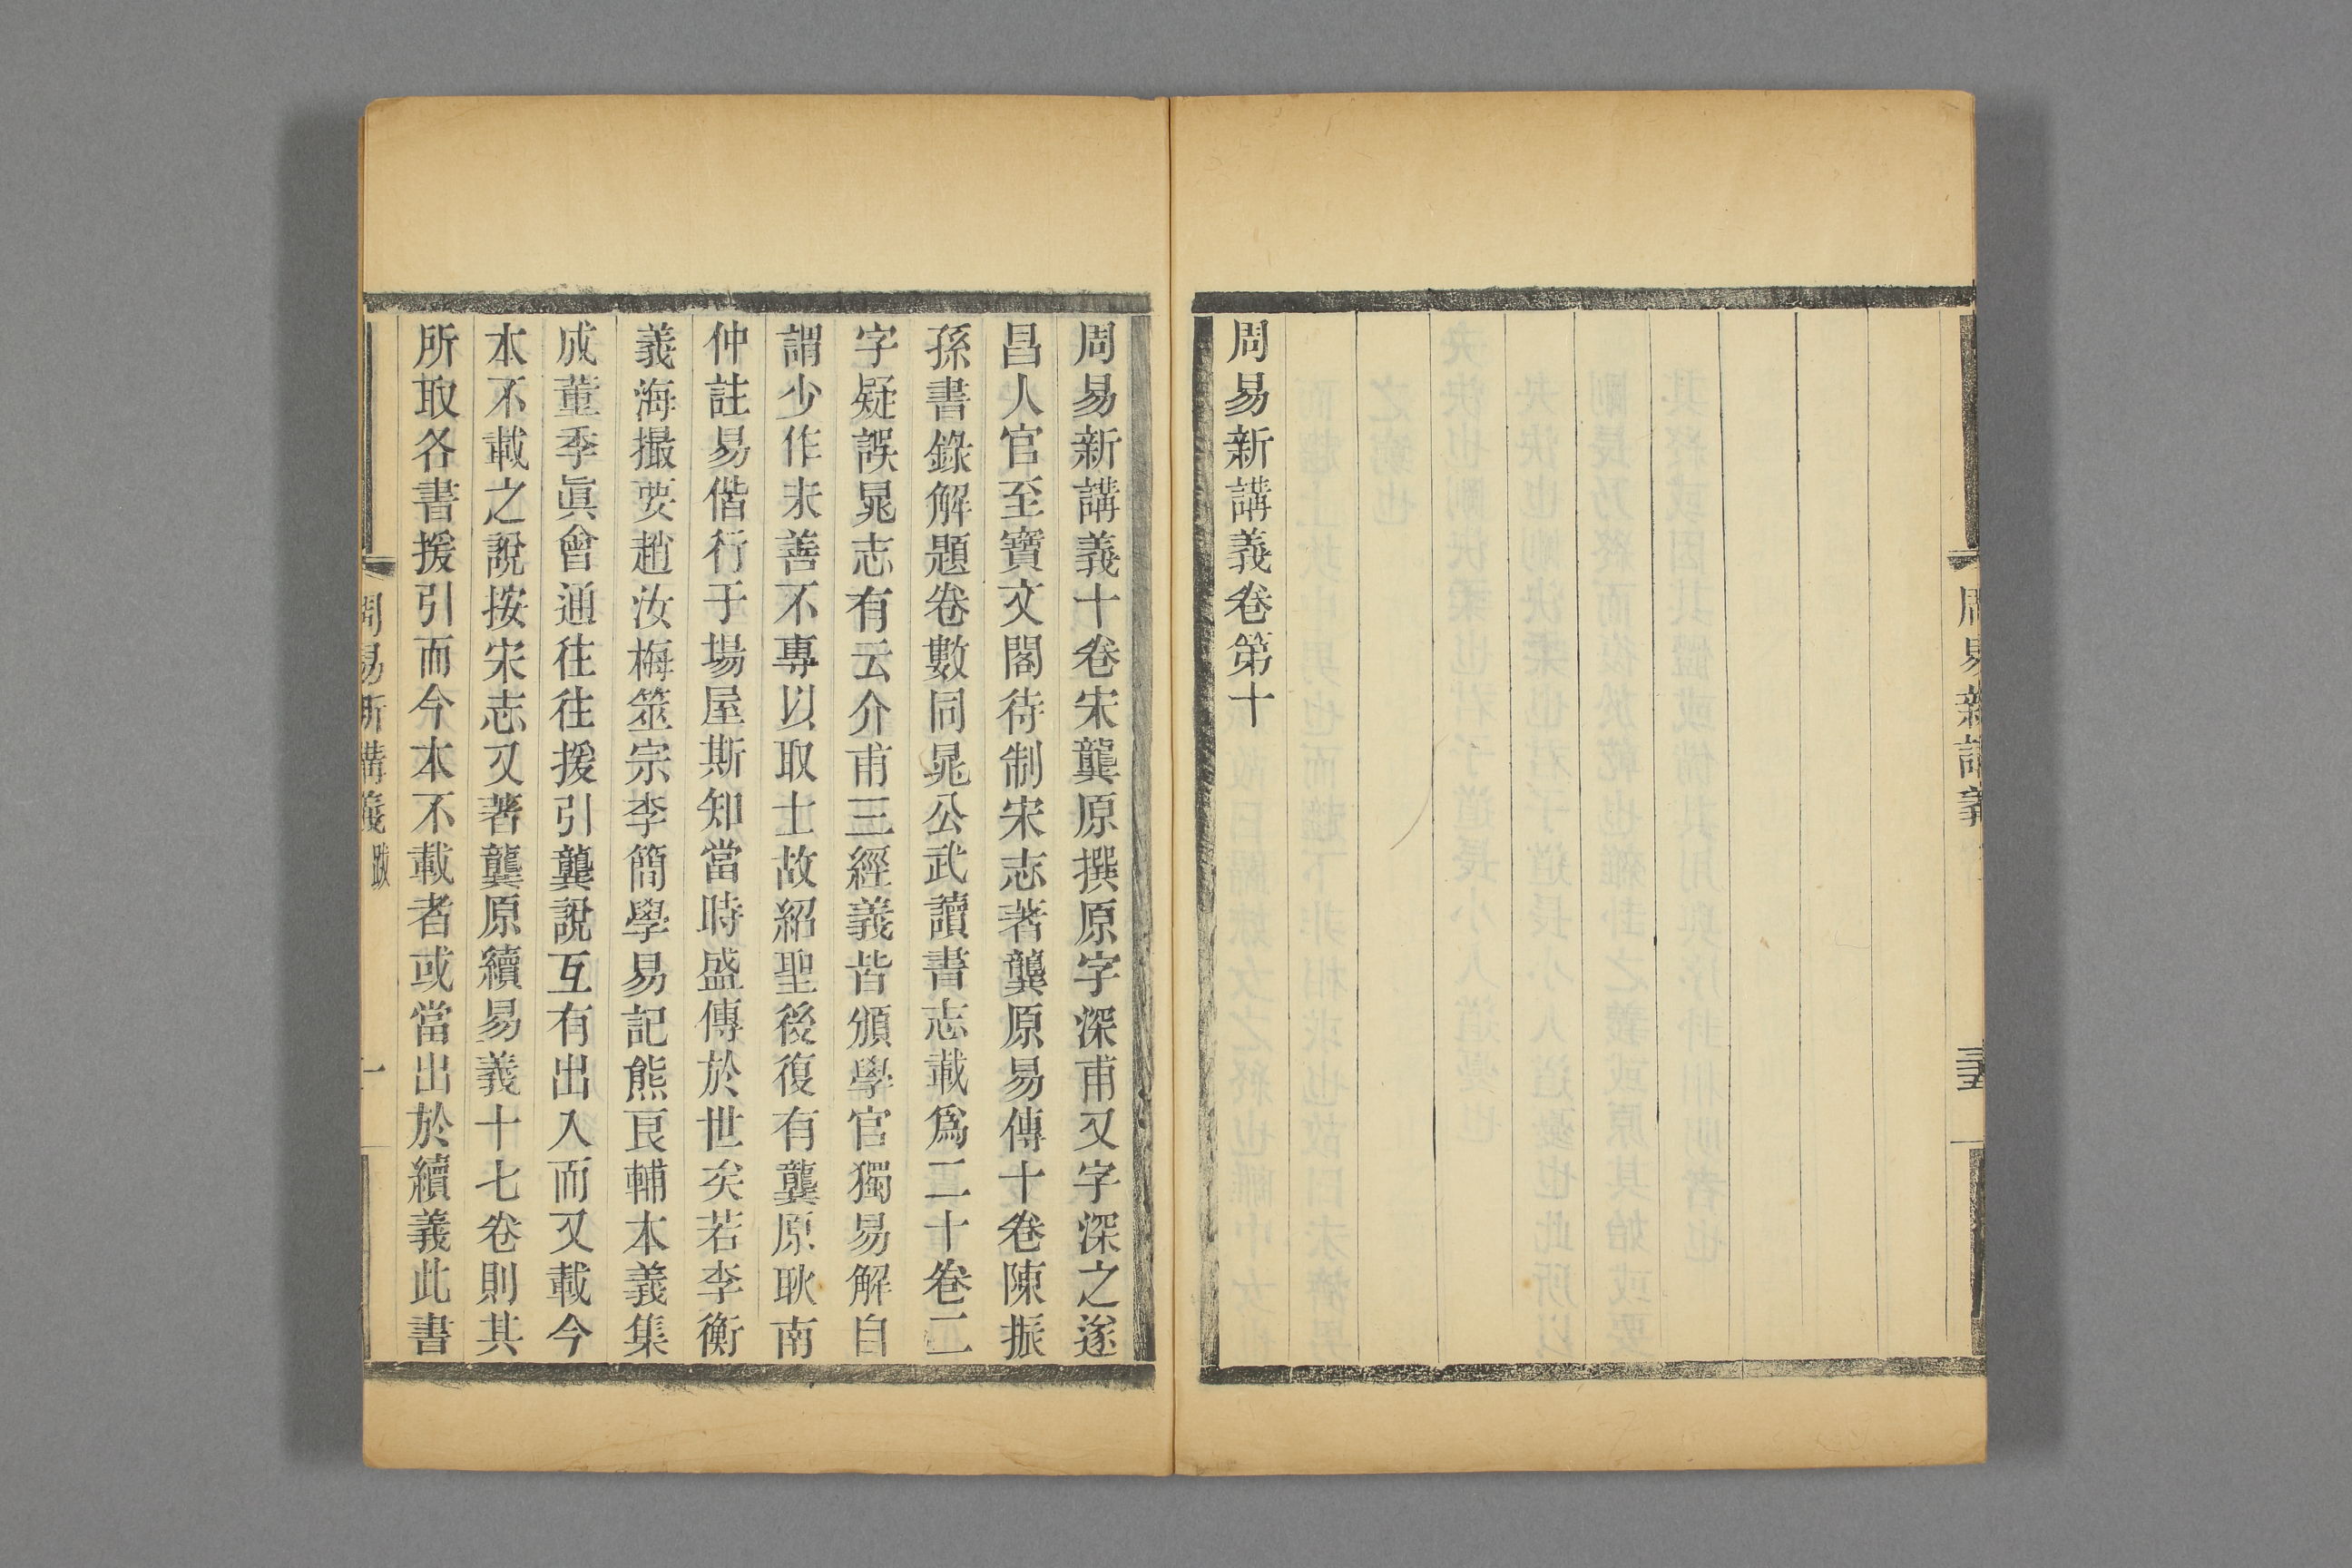 周易新講義
三五
周易新講義卷第十
周易新講義十卷宋龔原撰原字深甫又字深之遂
昌人官至寶文閣待制宋志著龔原易傳十卷陳振
孫書錄解題卷數同晁公武讀書志載爲二十卷二
字疑誤晁志有云介甫三經義皆頒學官獨易解自
謂少作未善不專以取士故紹聖後復有龔原耿南
仲註易偕行于場屋斯知當時盛傳於世矣若李衡
義海撮要趙汝梅筮宗李簡學易記熊良輔本義集
成董季眞會通往往援引龔說互有出入而又載今
本不載之說按宋志又著龔原續易義十七卷則其
所取各書援引而今本不載者或當出於續義此書
周易新講義 跋 一